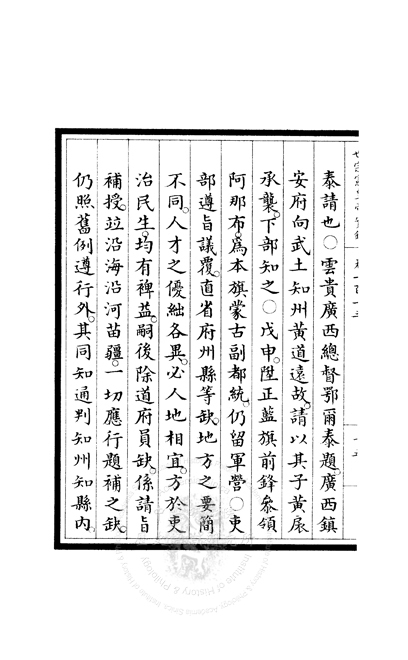 泰請也○雲貴廣西總督鄂爾泰題。廣西鎮
安府向武土知州黃道遠故。請以其子黃扆
承襲。下部知之○戊申。陞正藍旗前鋒參領
阿那布。為本旗蒙古副都統。仍留軍營○吏
部遵旨議覆。直省府州縣等缺。地方之要簡
不同。人才之優絀各異。必人地相宜。方於吏
治民生。均有裨益。嗣後除道府員缺。係請旨
補授。竝沿海沿河苗疆。一切應行題補之缺。
仍照舊例遵行外。其同知通判知州知縣內。